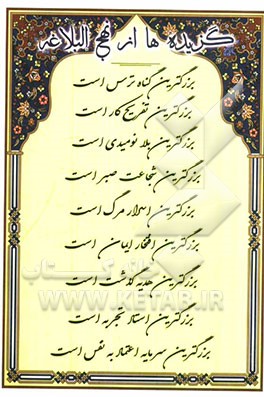 گزیده ها از نهج البلاغه
بزرگترین گناه ترس است
بزرگترین تفریح کار است
بزرگترین بلا نومیدی است
بزرگترین شجاعت صبر است
بزرگترین اسرار مرگ است
بزرگترین افتخار ایمان است
بزرگترین هدیه گذشت است
بزرگترین استاد تجربه است
بزرگترین سرمایه اعتماد به نفس است
WWW.KETAB.IR